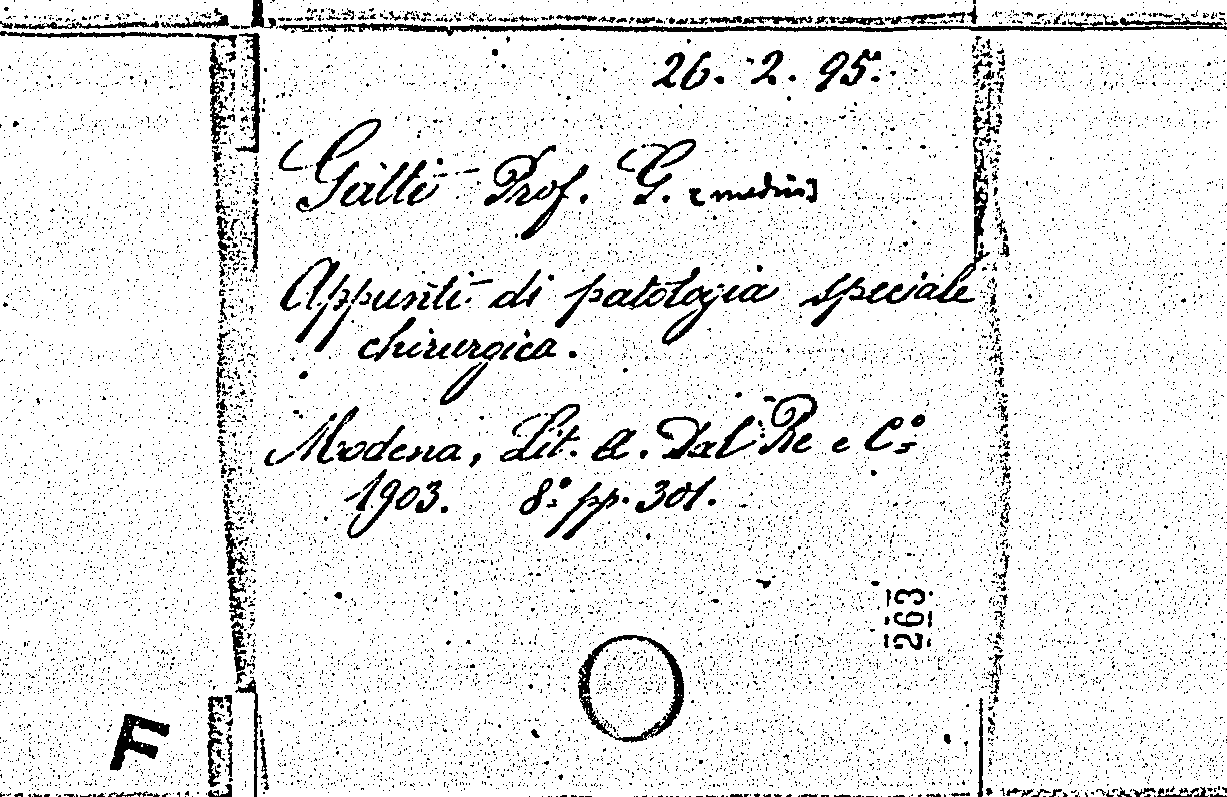 26. 2. 95.
Gatti Prof. G. [medico]
Appunti di patologia speciale
chirurgica.
Modena, Lit. A. Dal Re e Cº
1903. 8º pp. 301.
263
F